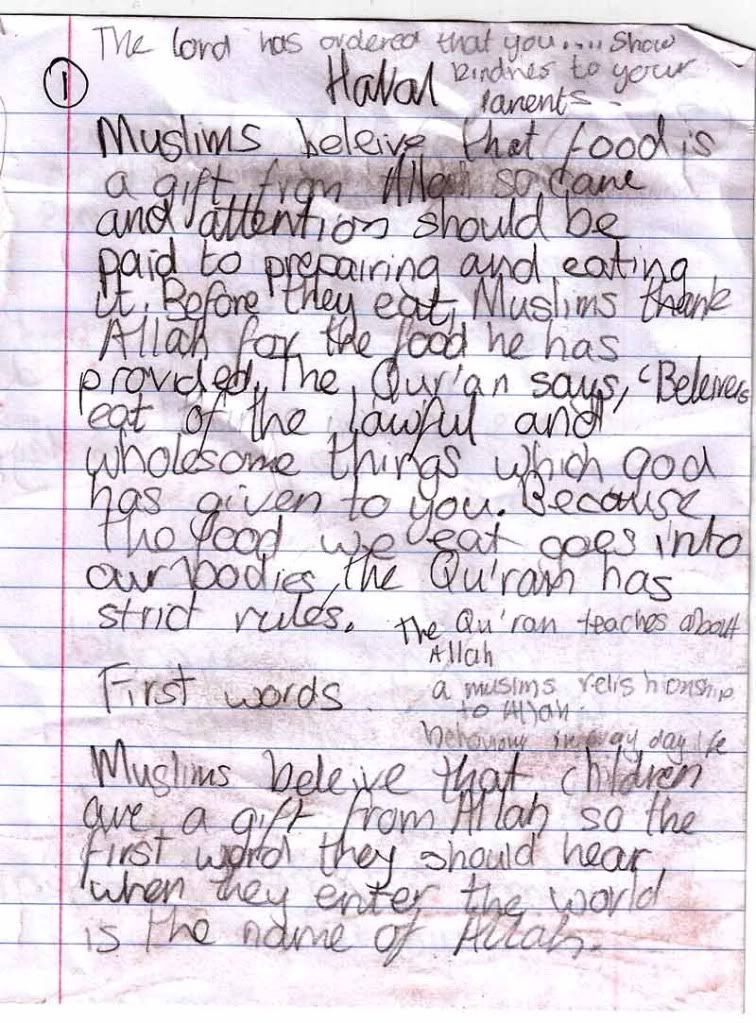 The lord has ordered that you.... show
kindnes to your
parents.
1
Halal
Muslims beleive that food is
a gift from Allah so care
and attention should be
paid to prepairing and eating
it. Before they eat, Muslims thank
Allah for the food he has
provided. The Qur'an says, 'Beleivers
eat of the lawful and
wholesome things which god
has given to you. Because
the food we eat goes into
our bodies, the Qu'ran has
strict rules.
the Qu'ran teaches about
Allah
First words
a muslims relishionship
to Allah.
behaviour in day life
Muslims beleive that children
are a gift from Allah so the
first word they should hear
when they enter the world
is the name of Allah.